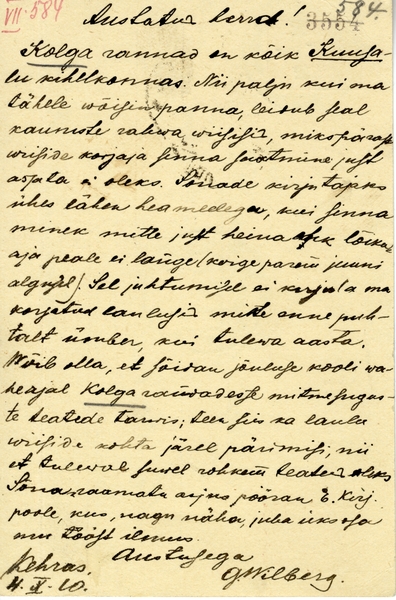 VII 584
584.
3554
Austatud herra!
Kolga rannad on kõik Kuusa-
lu kihelkonnas. Nii palju kui ma
tähele wõisin panna, leidub seal
kauniste rahwa wiisisid, mikspärast
wiiside korjaja sinna saatmine just
asjata ei oleks. Sõnade kirjutajaks
ühes lähen heameelega, kui sinna
minek mitte just heina ehk lõikuse
aja peale ei lange (kõige parem juuni
algusel). Sel juhtumisel ei kirjuta ma
korjatud laulusid mitte enne puh-
talt ümber, kui tulewa aasta.
Wõib olla, et sõidan jõuluse kooli wa-
heajal Kolga randadesse mitmesugus-
te teatede tarwis; teen siis ka laulu
wiiside kohta järel pärimisi, nii
et tulewal suwel rohkem teateid oleks
Sõna raamatu asjus pööran E. Kirj.
poole, kus, nagu näha, juba üks osa
mu tööst ilmus.
Austusega
Kehras. G. Wilberg.
4. X. 10.